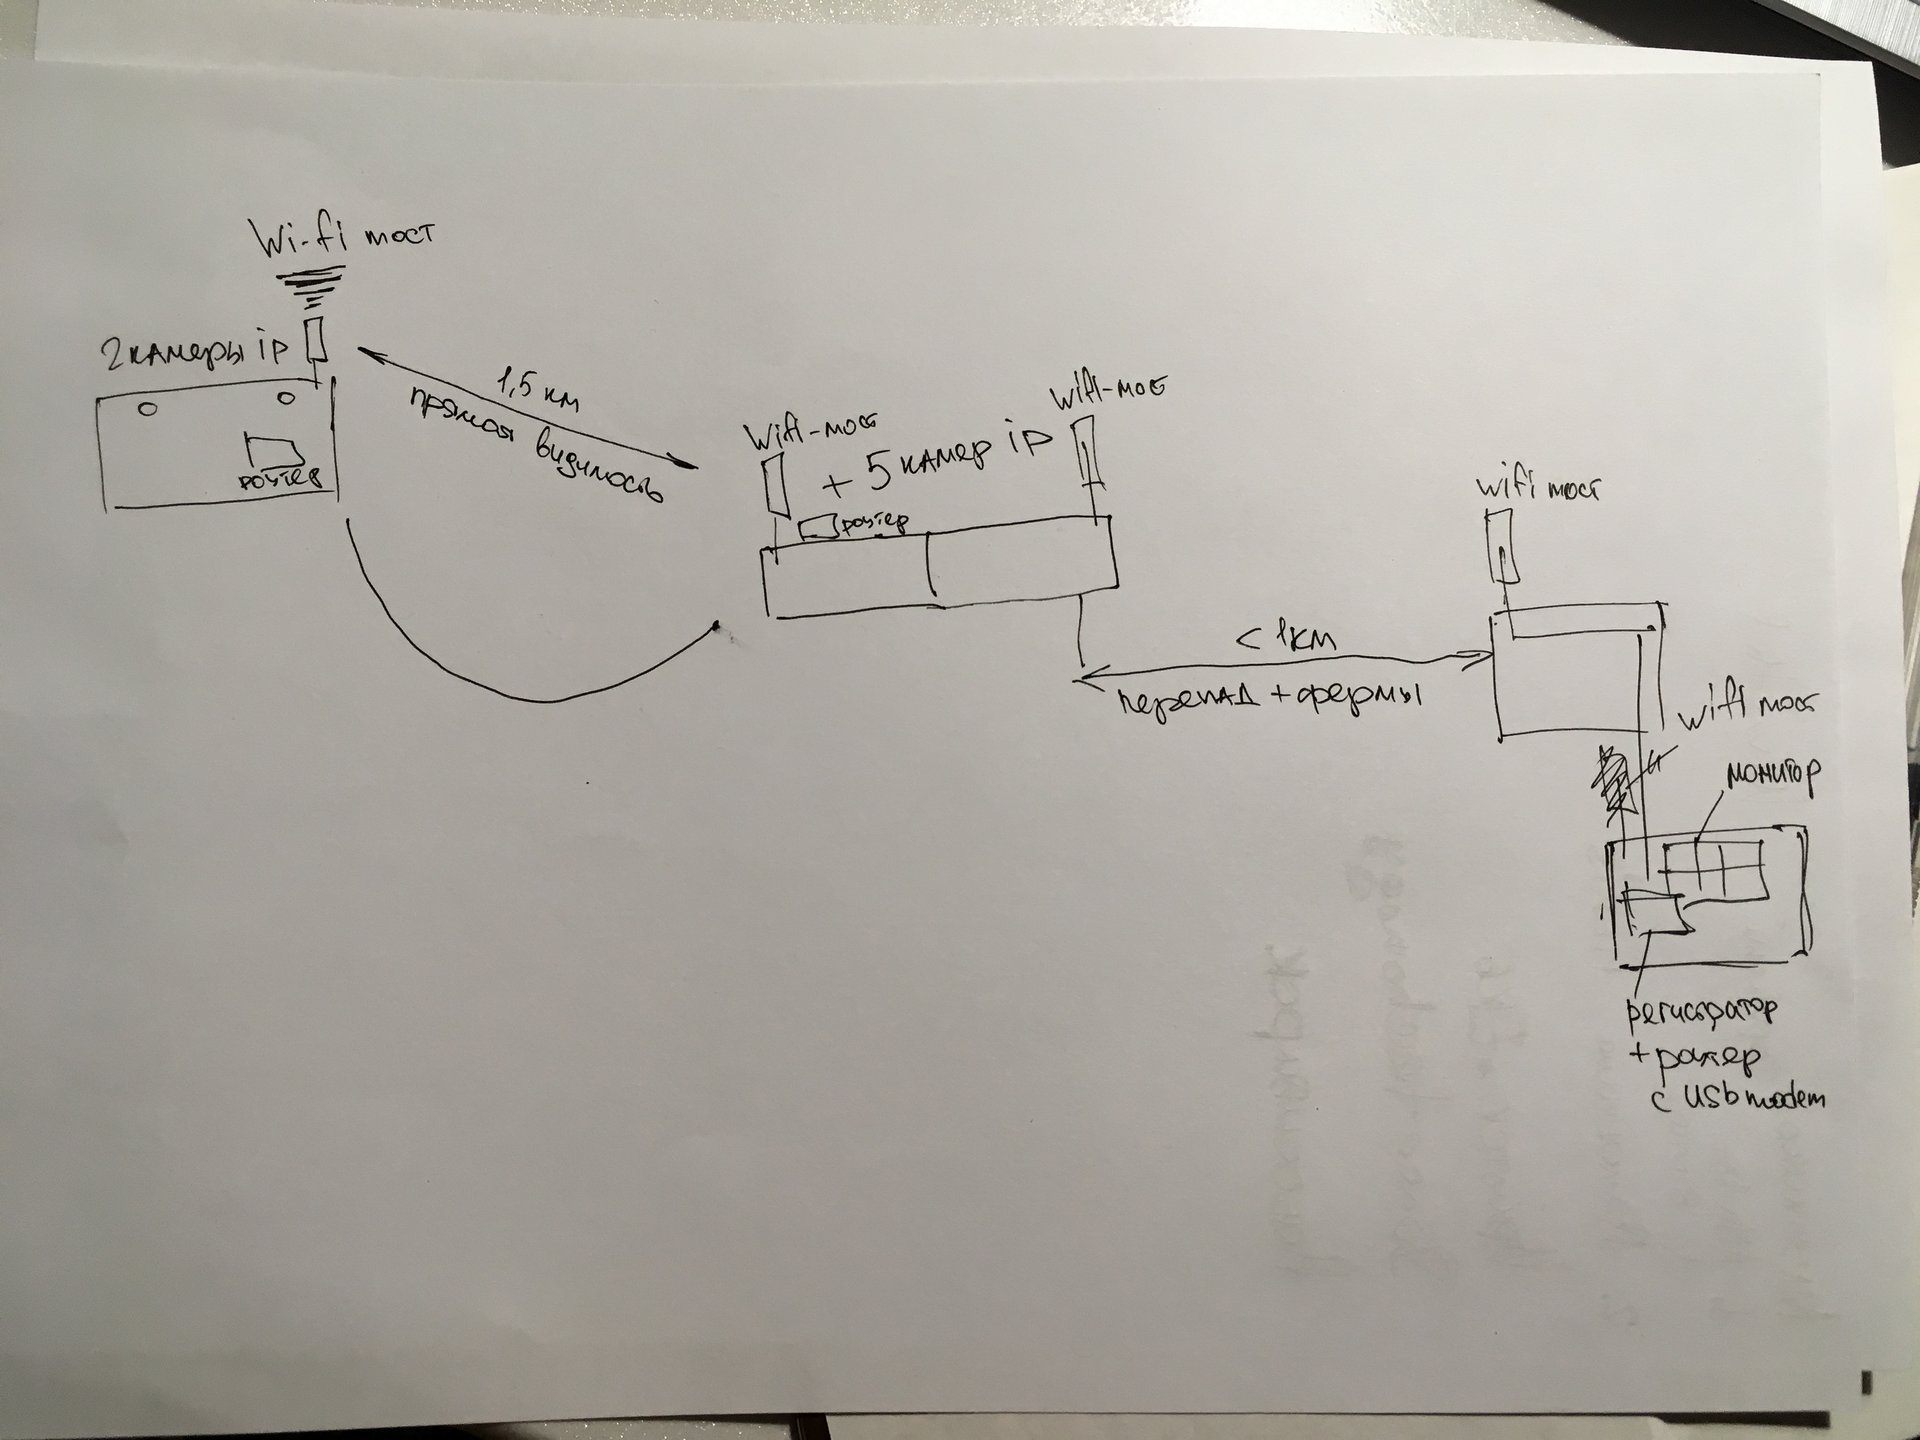 Wi-fi мост
2 камеры ip
роутер
1,5 км
прямая видимость
Wifi-мост
+ 5 камер ip
роутер
wifi-мост
< 1км
перепад + фермы
wifi мост
wifi мост
монитор
регистратор
+ роутер
с USb modem